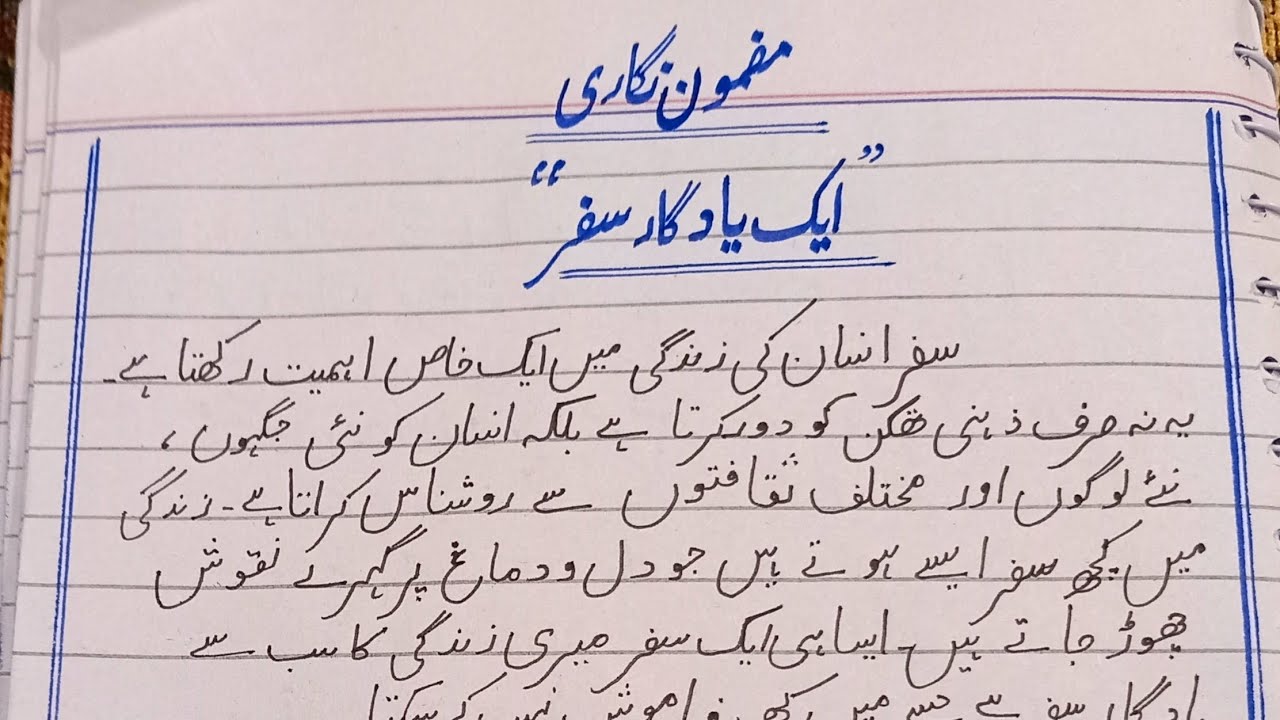 مضمون نگاری
”ایک یادگار سفر“
سفر انسان کی زندگی میں ایک خاص اہمیت رکھتا ہے۔
یہ نہ صرف ذہنی تھکن کو دور کرتا ہے بلکہ انسان کو نئی جگہوں ،
نئے لوگوں اور مختلف ثقافتوں سے روشناس کراتا ہے۔ زندگی
میں کچھ سفر ایسے ہوتے ہیں جو دل و دماغ پر گہرے نقوش
چھوڑ جاتے ہیں۔ ایسا ہی ایک سفر میری زندگی کا سب سے
یادگار سفر ہے جسے میں کبھی فراموش نہیں کر سکتا